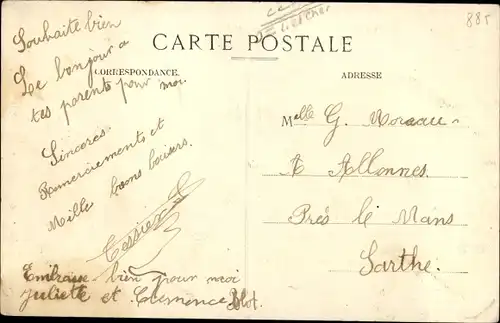 885
CARTE POSTALE
CORRESPONDANCE
ADRESSE
Souhaite bien
Le bonjour a
tes parents pour moi.
Sincères
Remerciements et
Mille bons baisers.
Tessier
Embrasse bien pour moi
Juliette et Clemence Blot.
Melle G. Moreau
A Allonnes
Près le Mans
Sarthe.